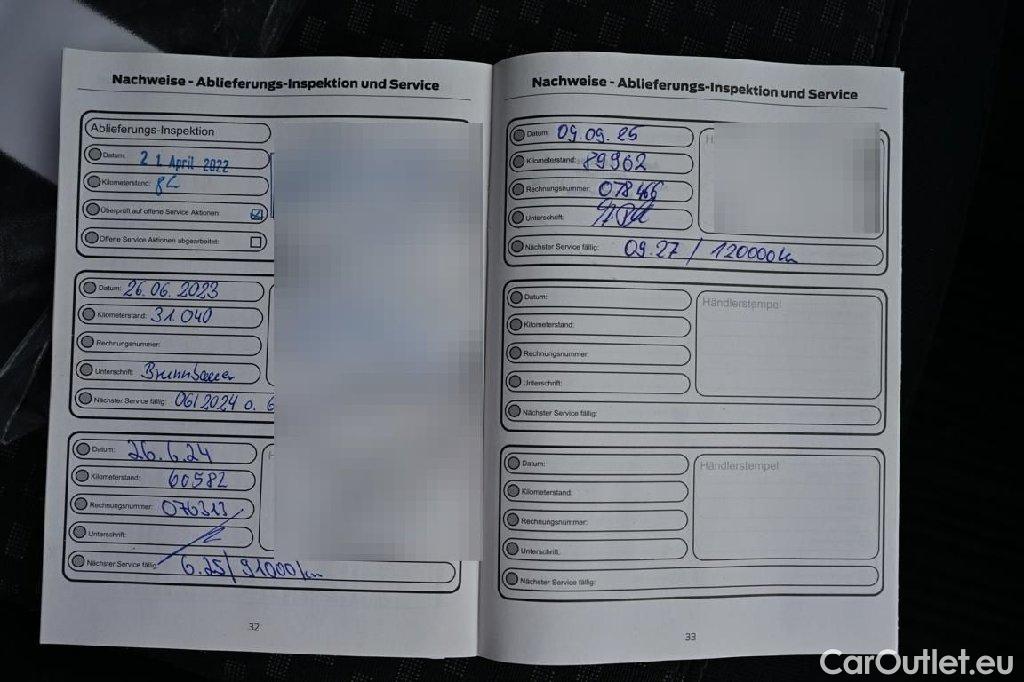 Nachweise - Ablieferungs-Inspektion und Service
Ablieferungs-Inspektion
Datum: 21 April 2022
Kilometerstand:
Überprüft auf offene Service Aktionen:
Offene Service Aktionen abgearbeitet:
Datum: 26.06.2023
Kilometerstand: 31 040
Rechnungsnummer:
Unterschrift:
Nächster Service fällig: 06/2024 o. 6
Datum: 26.6.24
Kilometerstand: 60582
Rechnungsnummer: 076313
Unterschrift:
Nächster Service fällig: 6.25/91000km
32
Nachweise - Ablieferungs-Inspektion und Service
Datum: 09.09.25
Kilometerstand: 89962
Rechnungsnummer: 078466
Unterschrift:
Nächster Service fällig: 09.27 / 120000km
Datum:
Händlerstempel
Kilometerstand:
Rechnungsnummer:
Unterschrift:
Nächster Service fällig:
Datum:
Händlerstempel
Kilometerstand:
Rechnungsnummer:
Unterschrift:
Nächster Service fällig:
33
CarOutlet.eu